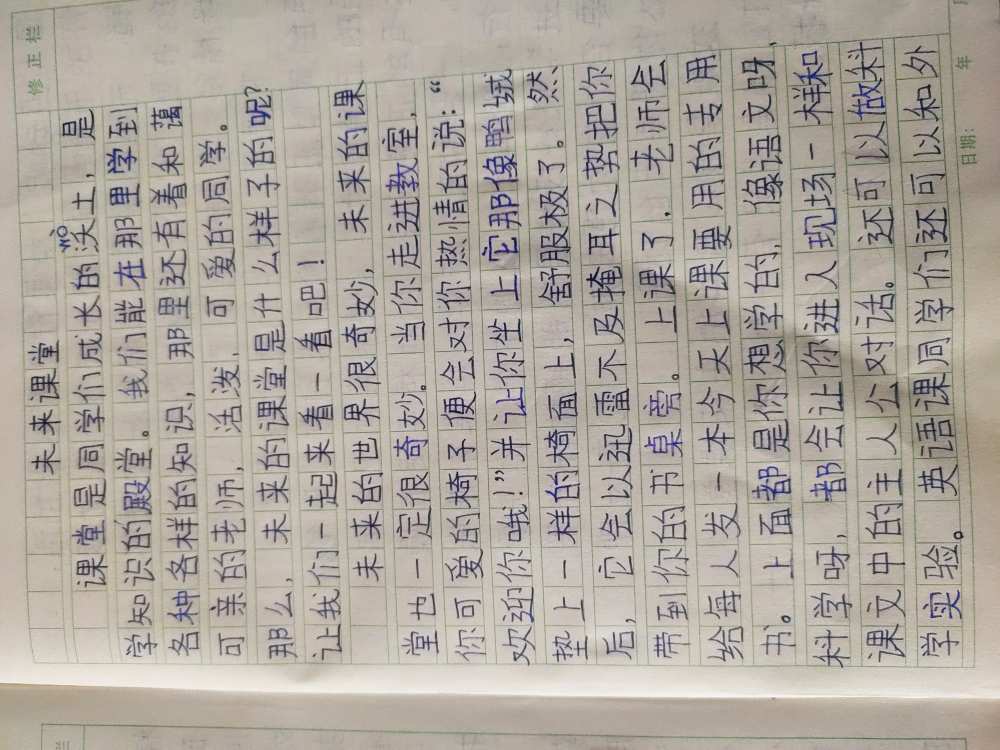 修正栏
未来课堂
课堂是同学们成长的沃土，是
wò
学知识的殿堂。我们能在那里学到
各种各样的知识，那里还有着和蔼
可亲的老师，活泼、可爱的同学。
那么，未来的课堂是什么样子的呢？
让我们一起来看一看吧！
未来的世界很奇妙，未来的课
堂也一定很奇妙。当你走进教室，
你可爱的椅子便会对你热情的说：“
欢迎你哦！”并让你坐上它那像鸭绒
垫上一样的椅面上，舒服极了。然
后，它会以迅雷不及掩耳之势把你
带到你的书桌旁。上课了，老师会
给每人发一本今天上课要用的专用
书。上面都是你想学的，像语文呀，
科学呀，都会让你进入现场一样和
课文中的主人公对话。还可以做科
学实验。英语课同学们还可以和外
日期：
年
栏